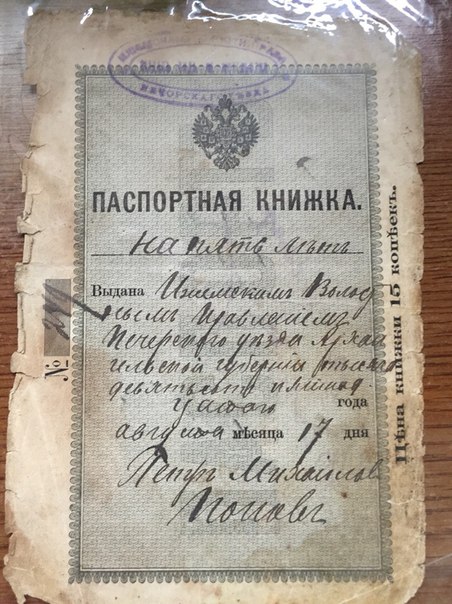 ПЕЧОРСКАГО УѢЗДА
ПАСПОРТНАЯ КНИЖКА.
на пять лѣтъ
Выдана Ижемскимъ Волост
нымъ Правленіемъ
Печорскаго уѣзда Архан
гельской губерніи тысяча
девятьсотъ
года
августа мѣсяца 17 дня
Петръ Михайловъ
Поповъ
№
Цѣна книжки 15 копѣекъ.